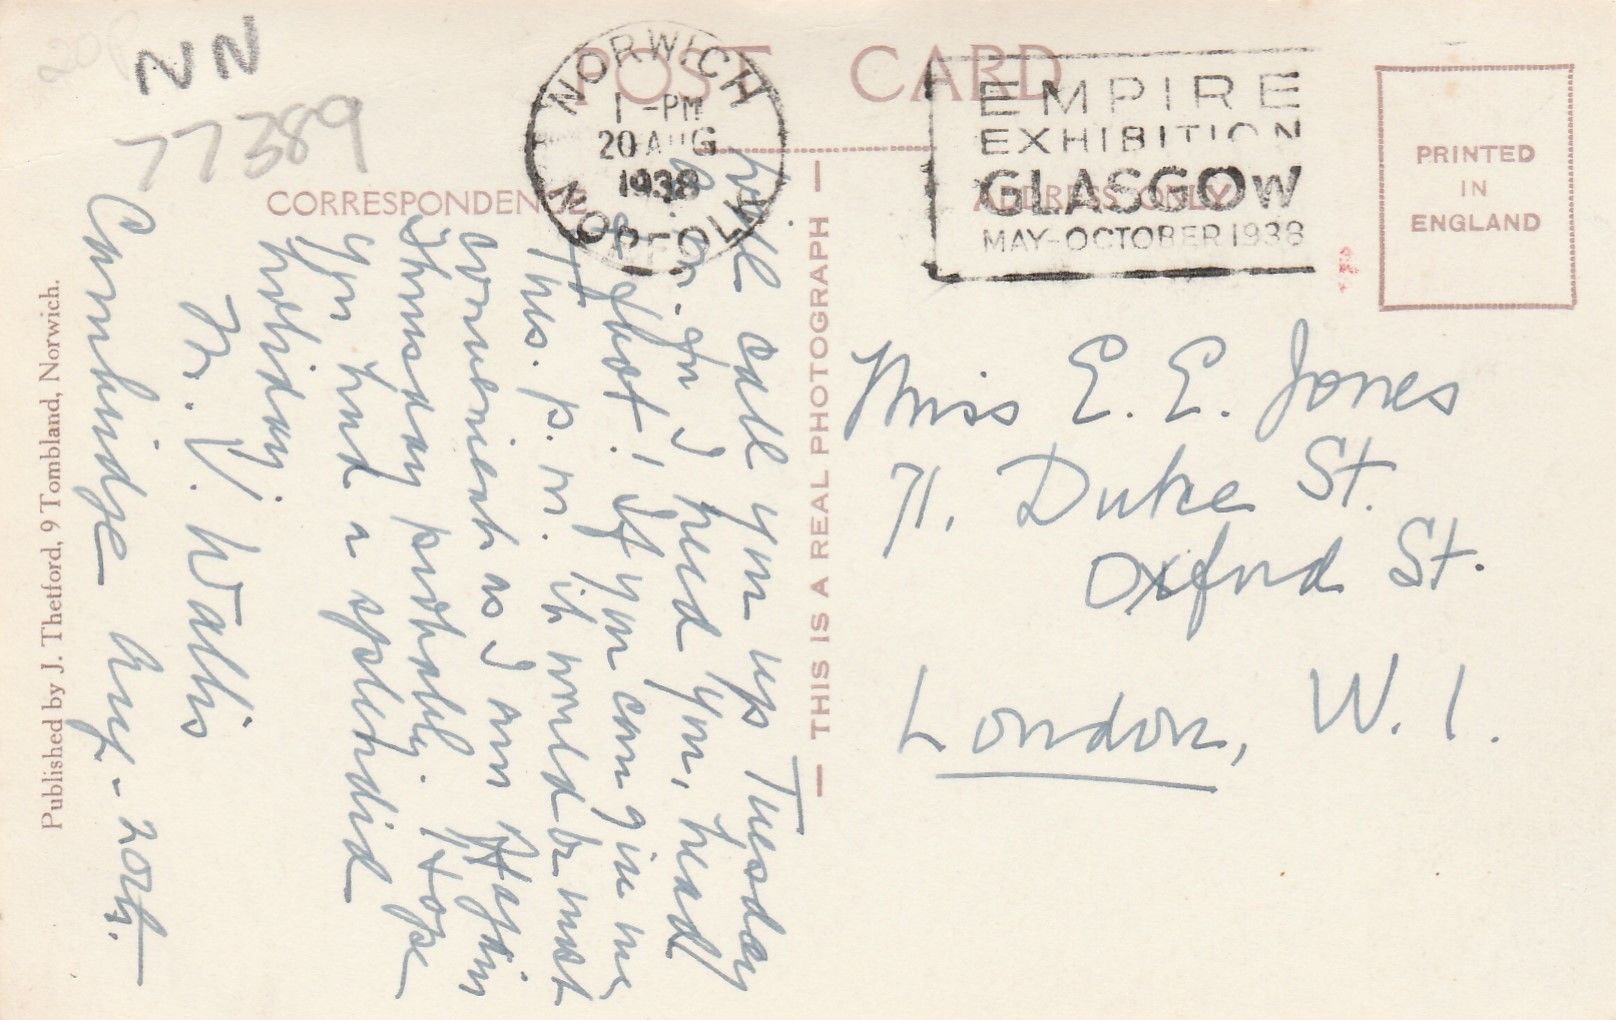 NN
77389
POST CARD
NORWICH
1 - PM
20 AUG
1938
NORFOLK
EMPIRE
EXHIBITION
GLASGOW
MAY-OCTOBER 1938
PRINTED
IN
ENGLAND
CORRESPONDENCE
ADDRESS ONLY
Will call you up Tuesday
a.m. for I need you, head
& foot! If you can give me
Tues. p.m. it would be most
convenient as I am
Thursday probably. Hope
you had a splendid
holiday.
M. V. Wallis
Cambridge Aug. 20th.
Published by J. Thetford, 9 Tombland, Norwich.
— THIS IS A REAL PHOTOGRAPH —
Miss E. E. Jones
71, Duke St.
Oxford St.
London, W. 1.